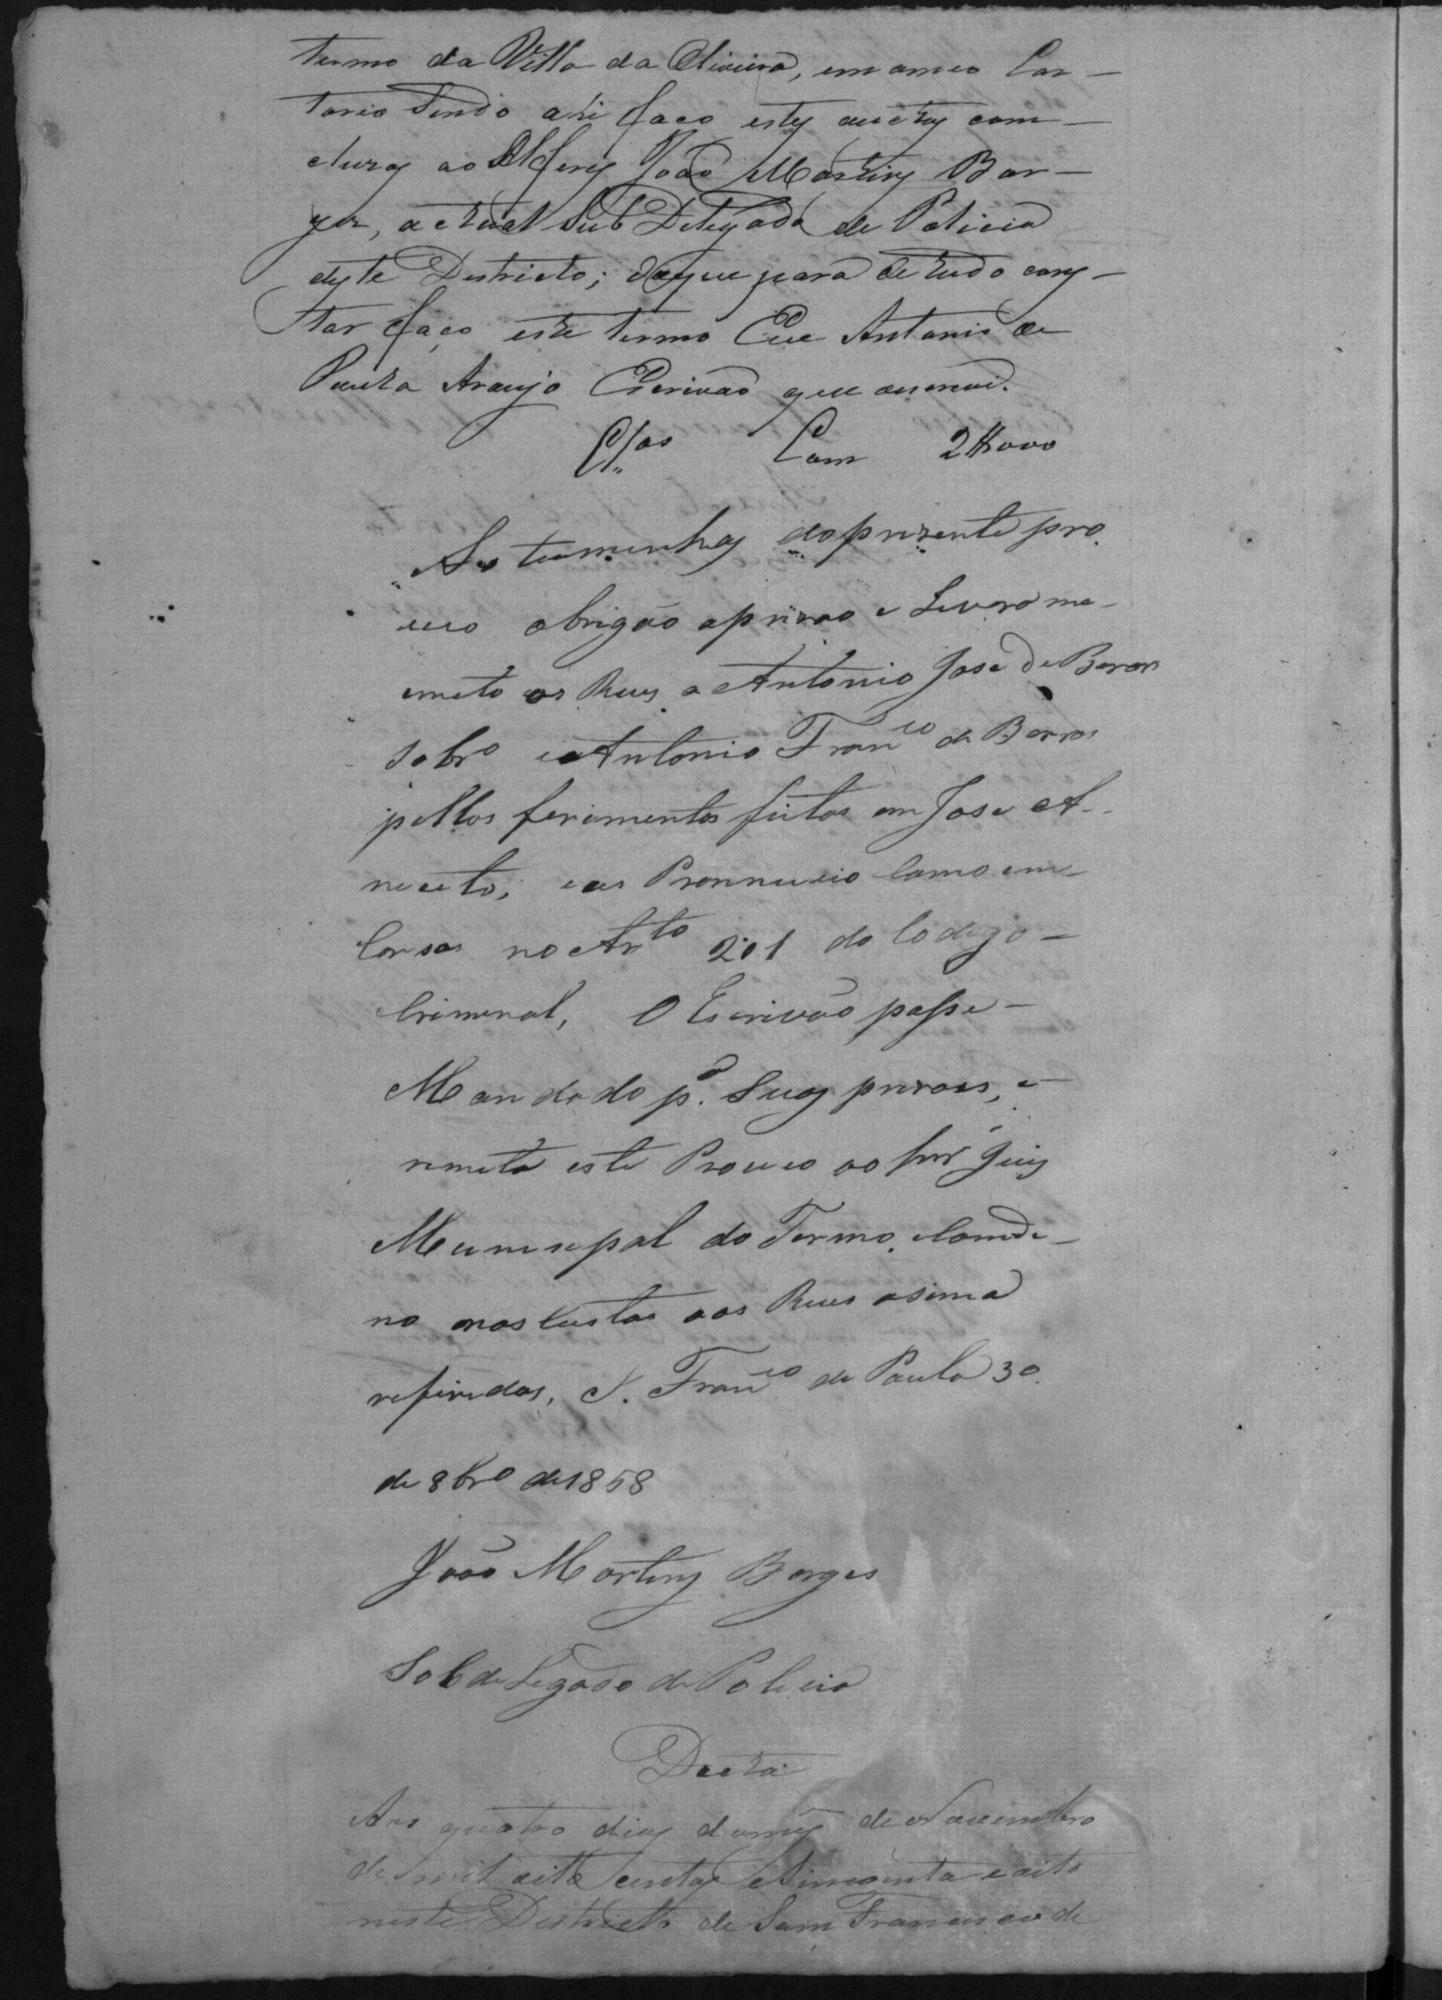 termo da Villa da Oliveira, em o meo Car-
torio sendo ahi faco estes auctos com-
cluzos ao Alferes João Martins Bor-
ges, actual Sub Delegado de Policia
deste Districto; do que para de tudo cons-
tar faço este termo Eu Antonio de
Paula Araujo Escrivão que escrevi.
Clos Com 2H000
As testeminhas do prizente pro-
ceco obrigão a prizão e Livramo-
mento os Reus a Antonio Jose de Barros
sobro e Antonio Franco de Barros
pellos ferimentos feitos em Jose A-
neceto, e os Pronnuncio Como em-
Corsos no Arto 201 do Codigo
Criminal, O Escrivão passe
Mandado pa. Suas prizois, e
remeta este Proceco ao Snr Juis
Municipal do Termo, Comde-
no nas Custas aos Reus asima
referidos, S. Franco de Paula 30
de 8bro de 1858
João Martins Borges
Sobdelegado de Policia
Dacta
Aos quatro dias do mes de Novembro
de mil oito centos e Sincoenta e oito
neste Districto de Sam Francisco de